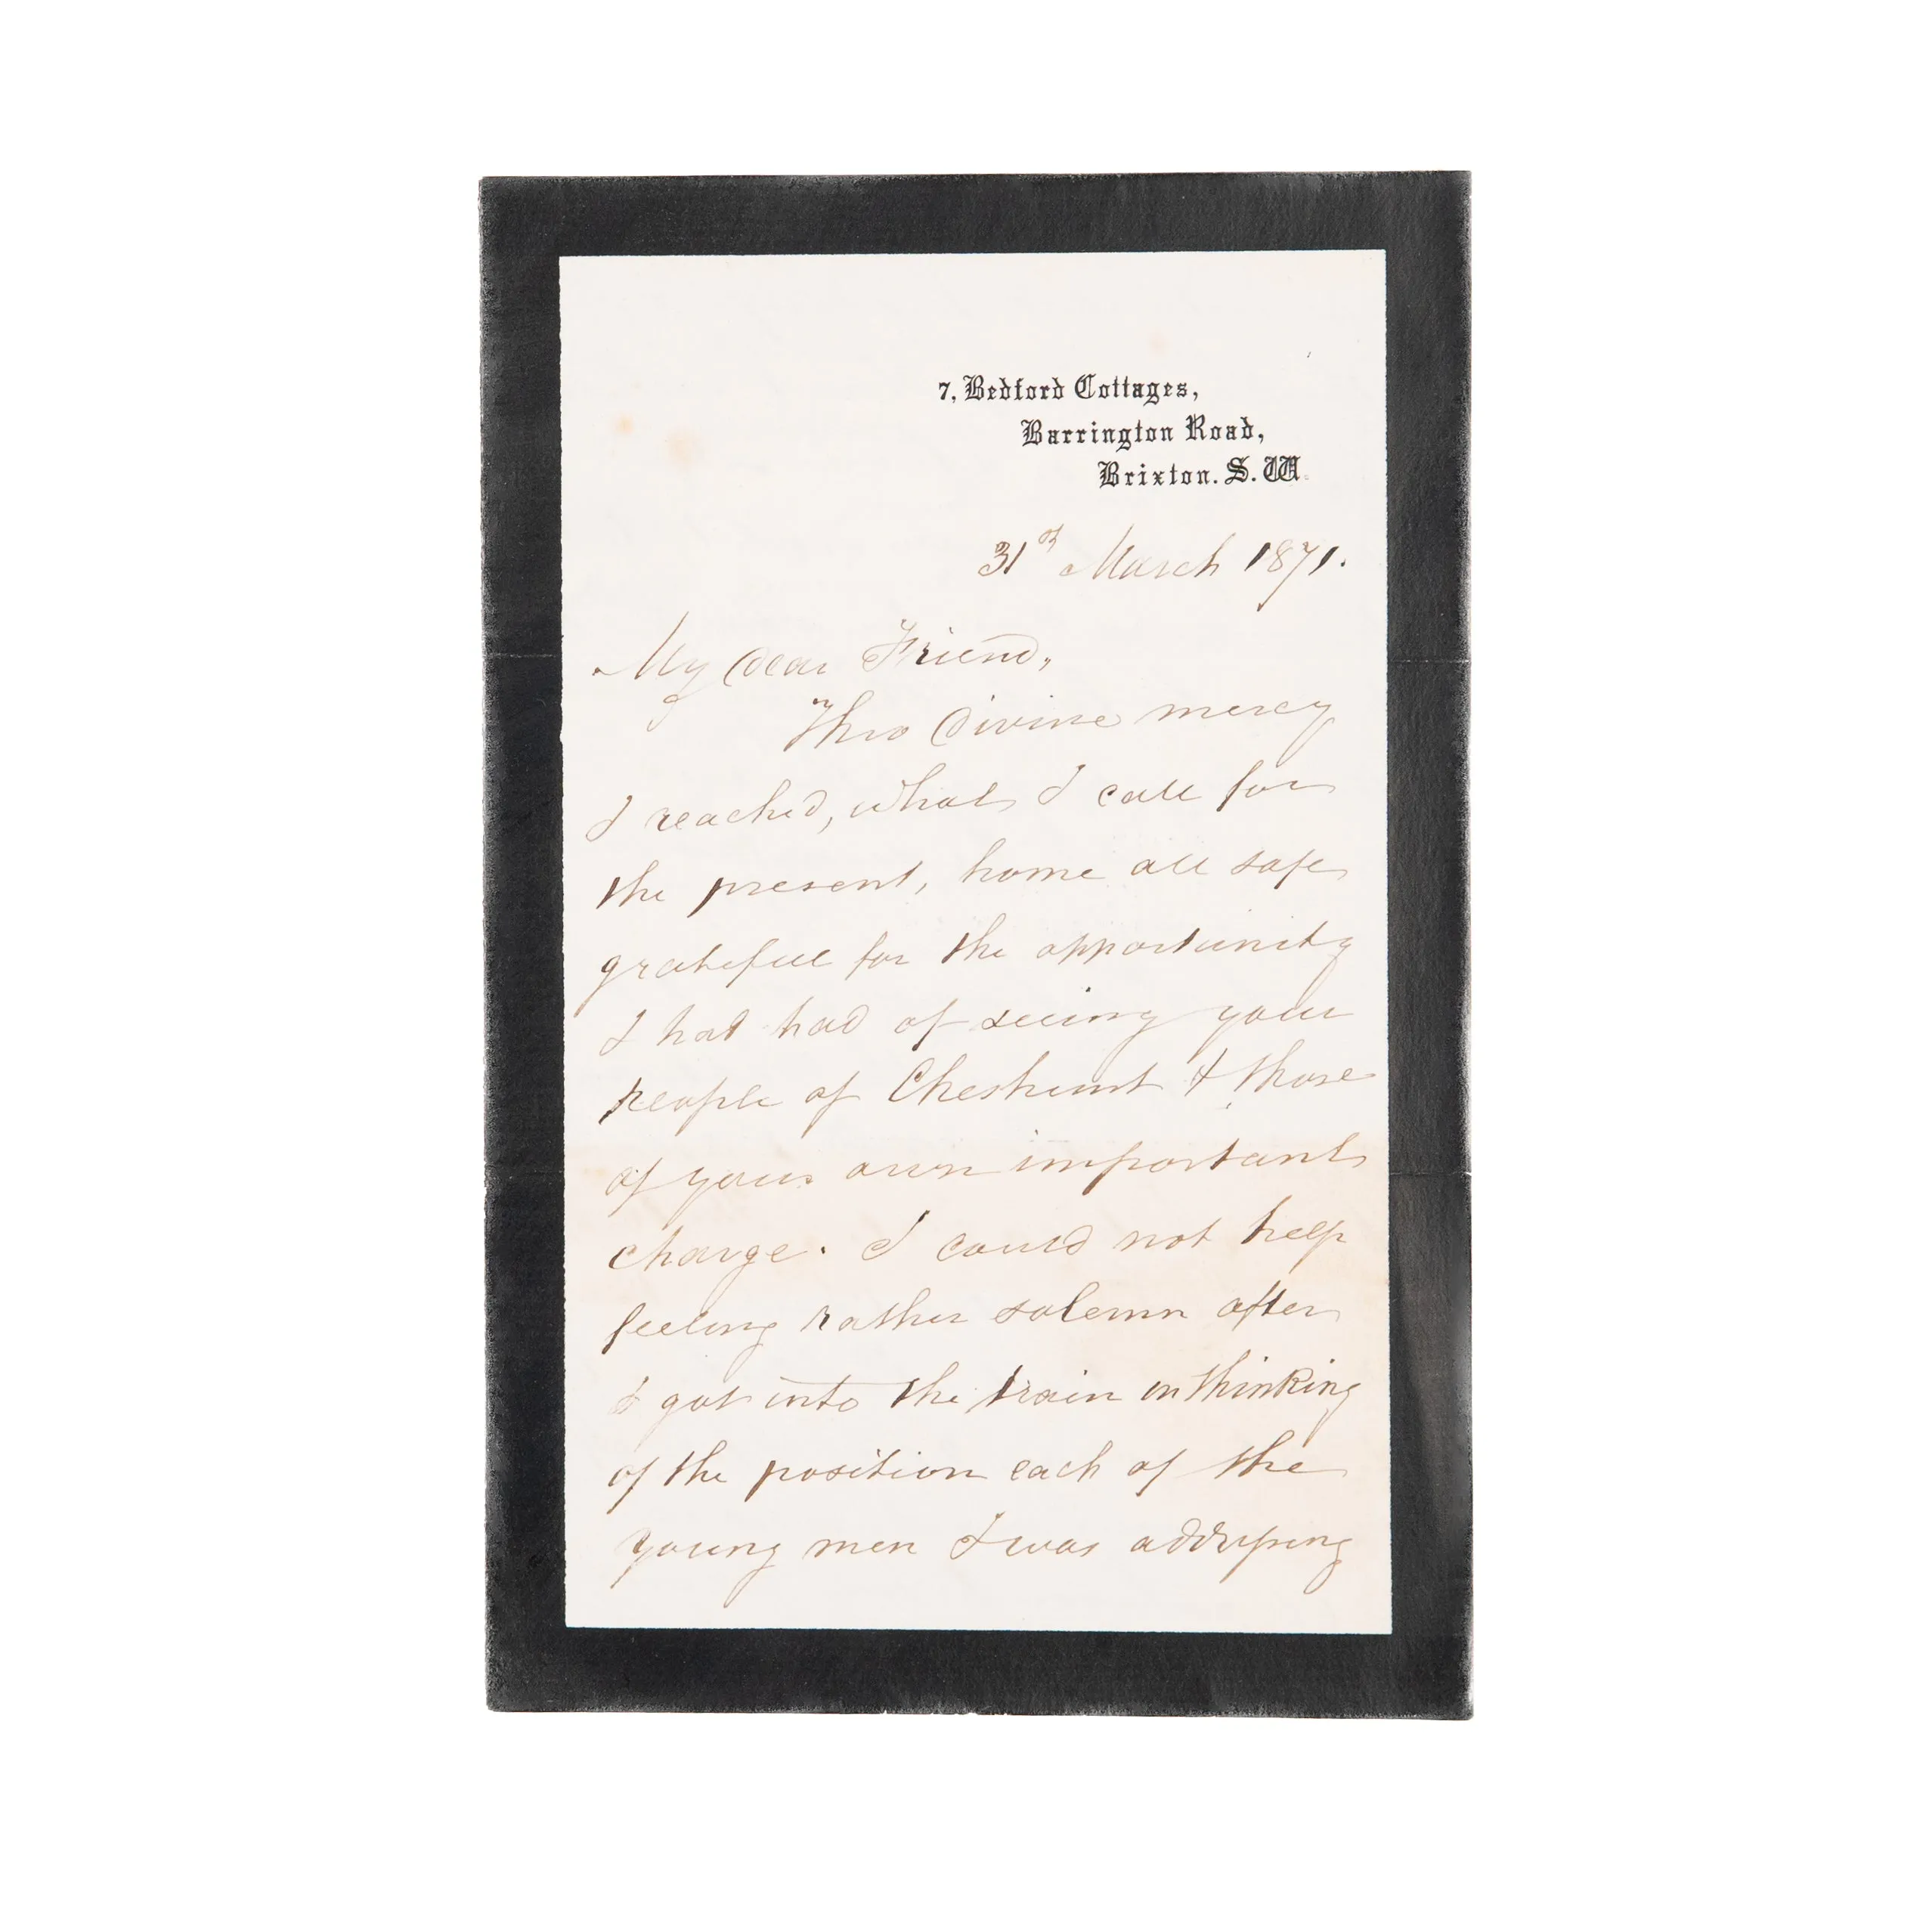 7, Bedford Cottages,
Barrington Road,
Brixton. S. W.
31st March 1871.
My dear Friend,
Thro Divine mercy
I reached, what I call for
the present, home all safe
grateful for the opportunity
I had had of seeing your
people of Cheshunt & those
of your own important
charge. I could not help
feeling rather solemn after
I got into the train in thinking
of the position each of the
young men I was addressing